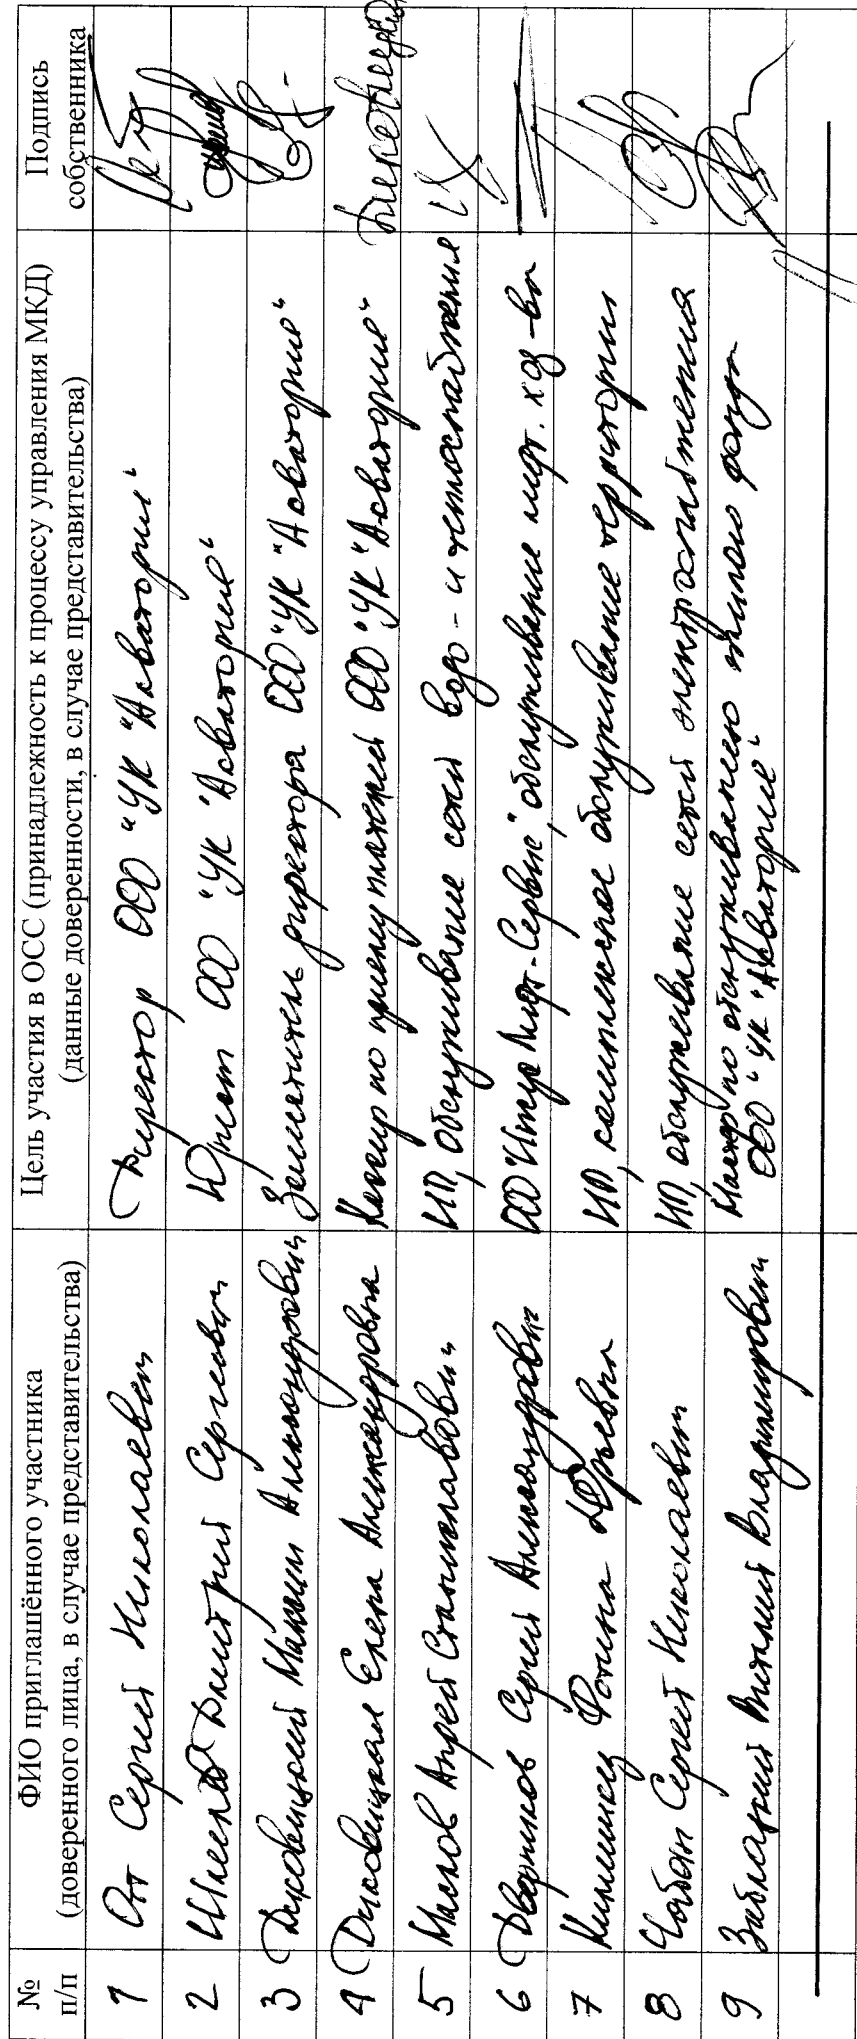 № п/п
ФИО приглашённого участника
(доверенного лица, в случае представительства)
Цель участия в ОСС (принадлежность к процессу управления МКД)
(данные доверенности, в случае представительства)
Подпись
собственника
1 Отт Сергей Николаевич Директор ООО "УК "Акватория"
2 Дмитрий Сергеевич Юрист ООО "УК "Акватория"
3 Максим Александрович Заместитель директора ООО "УК "Акватория"
4 Елена Александровна Кассир по приему платежей ООО "УК "Акватория"
5 Маслов Андрей Станиславович ИП, обслуживание сетей водо- и теплоснабжения
6 Дворников Сергей Александрович ООО Лифт-Сервис", обслуживание лифт. хоз-ва
7 Юрьевна ИП, комплексное обслуживание территории
8 Чобан Сергей Николаевич ИП, обслуживание сетей электроснабжения
9 Заблоцкий Виталий Владимирович Мастер по обслуживанию жилого фонда
ООО "УК "Акватория"